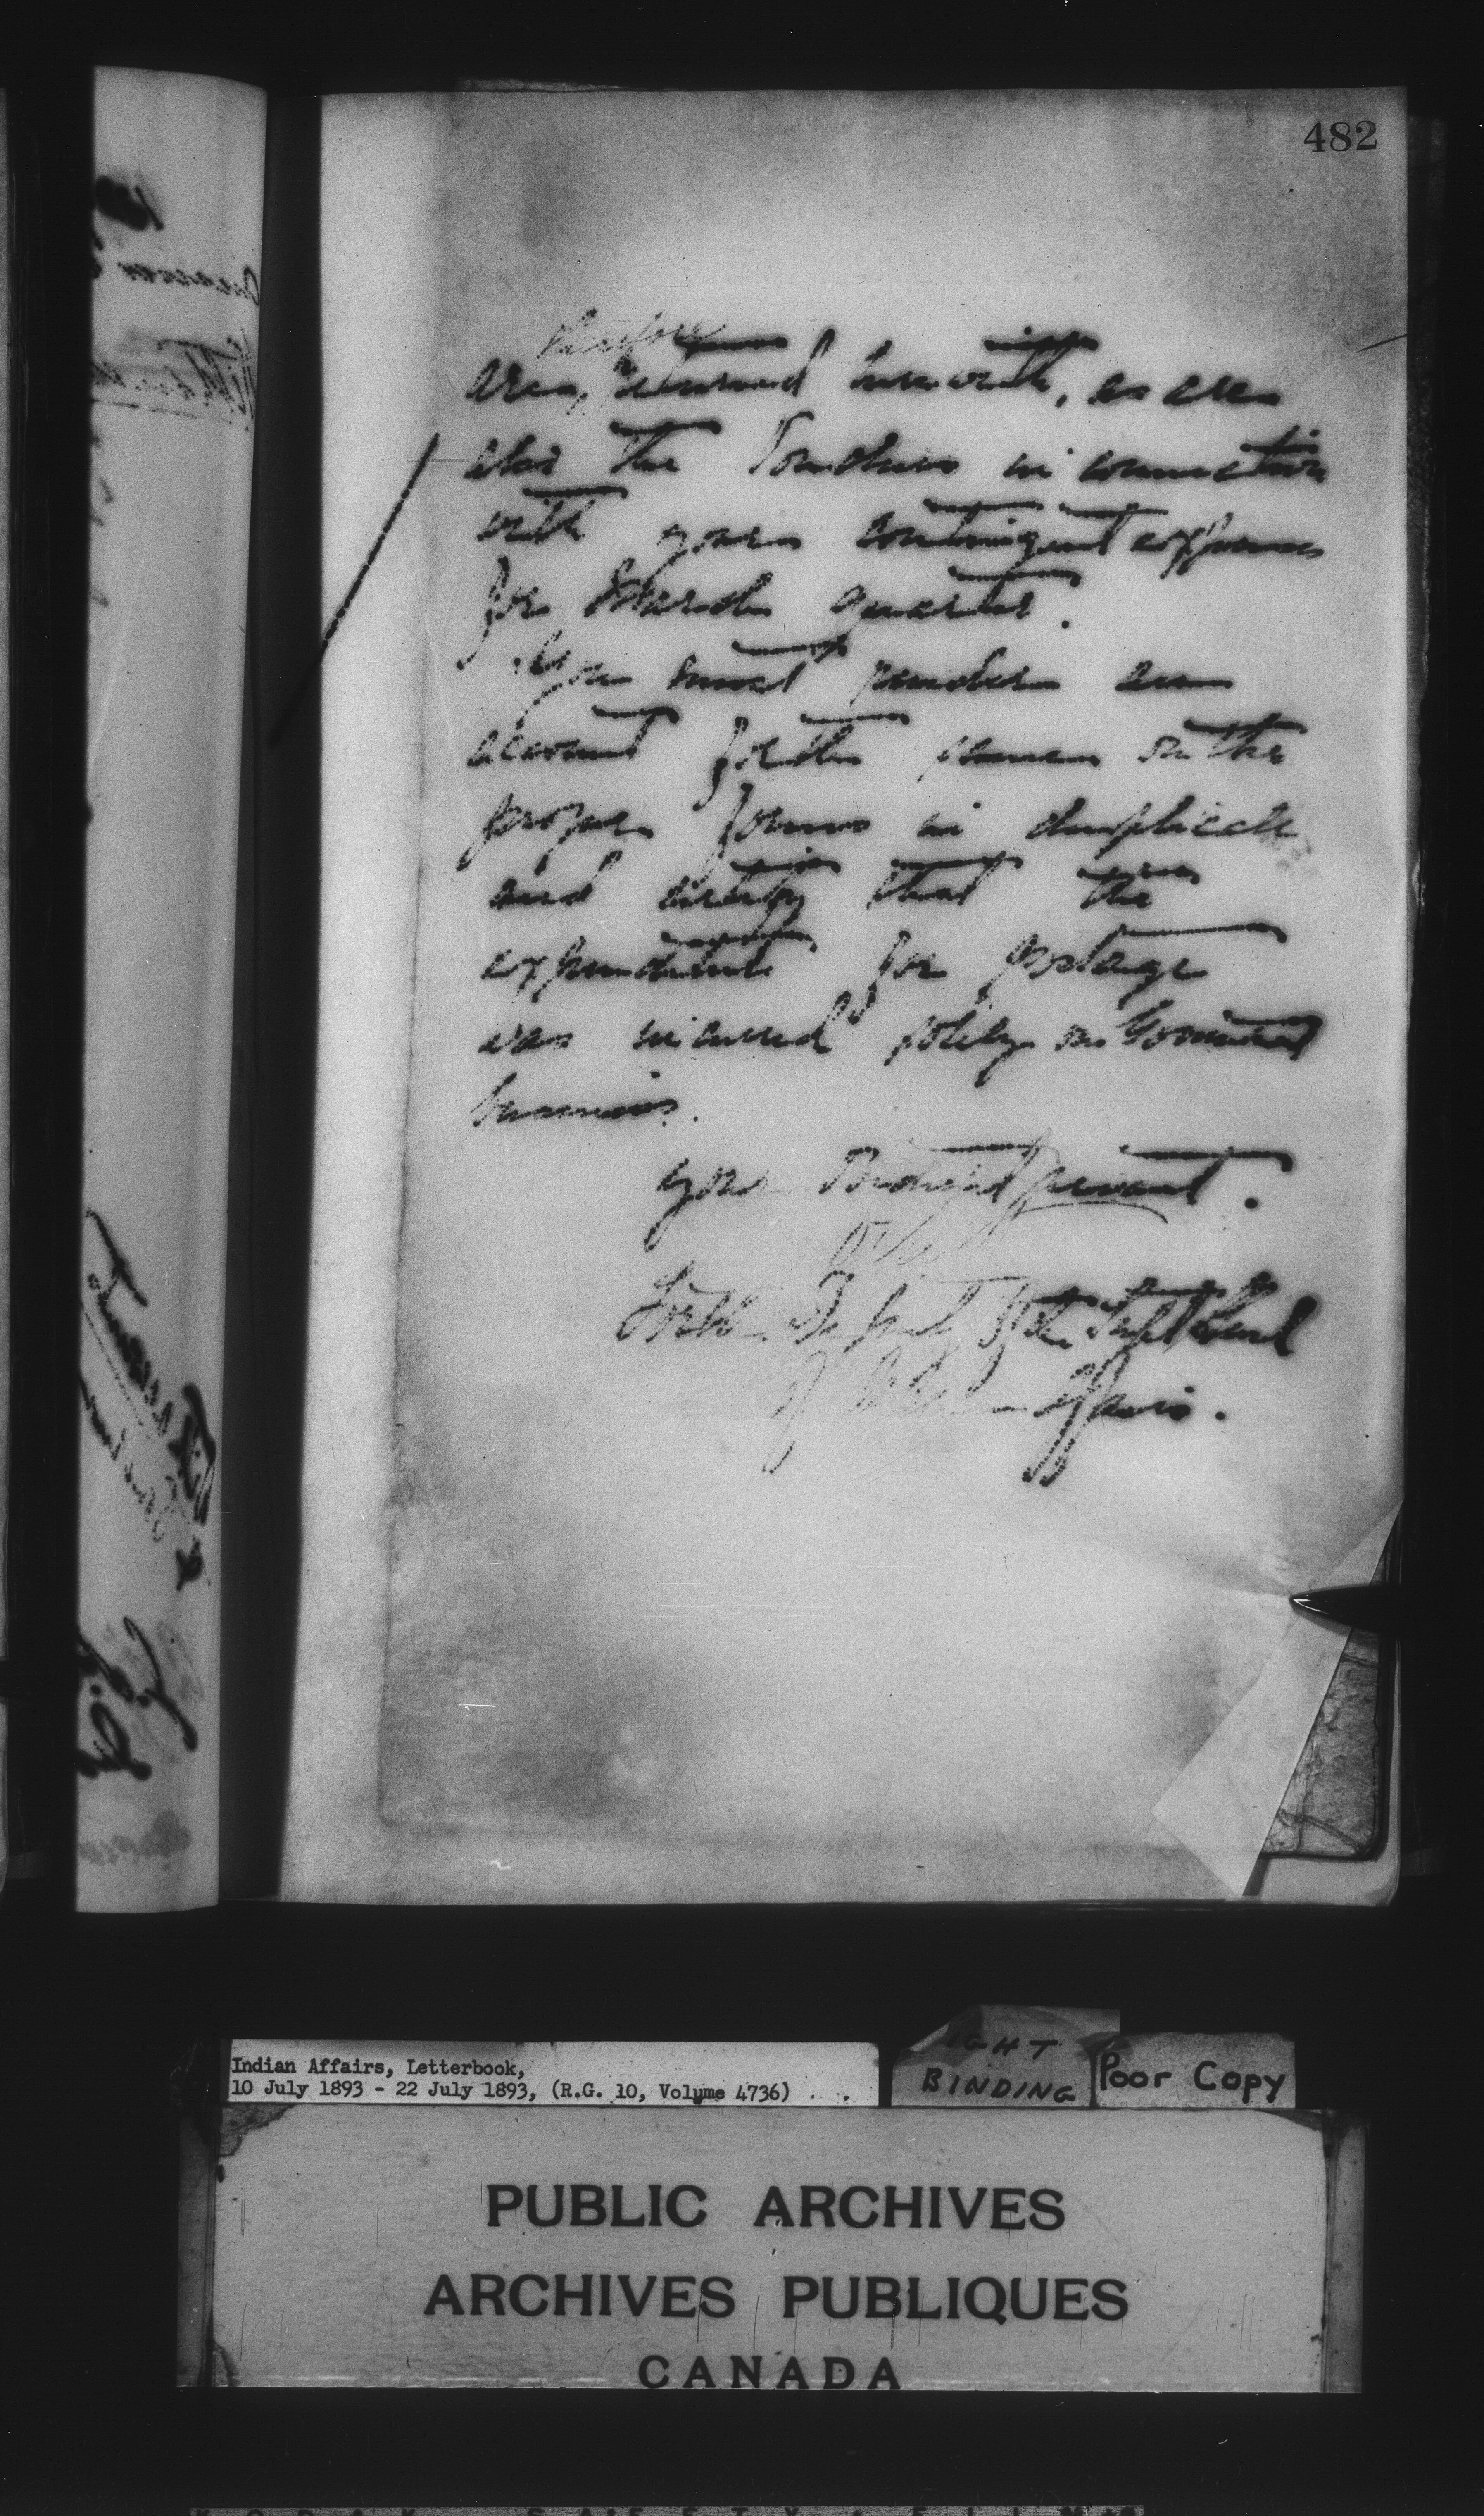 482
therefore
are, returned herewith, as are
also the Vouchers in connection
with your contingent expenses
for March quarter.
You must render an
account for the same on the
proper forms in duplicate
and certify that the
expenditure for postage
was incurred solely on Government
business.
Your obedient servant.
For the Deputy of the Supt Genl
of Indian Affairs.
Indian Affairs, Letterbook,
10 July 1893 - 22 July 1893, (R.G. 10, Volume 4736)
BINDING
Poor Copy
PUBLIC ARCHIVES
ARCHIVES PUBLIQUES
CANADA